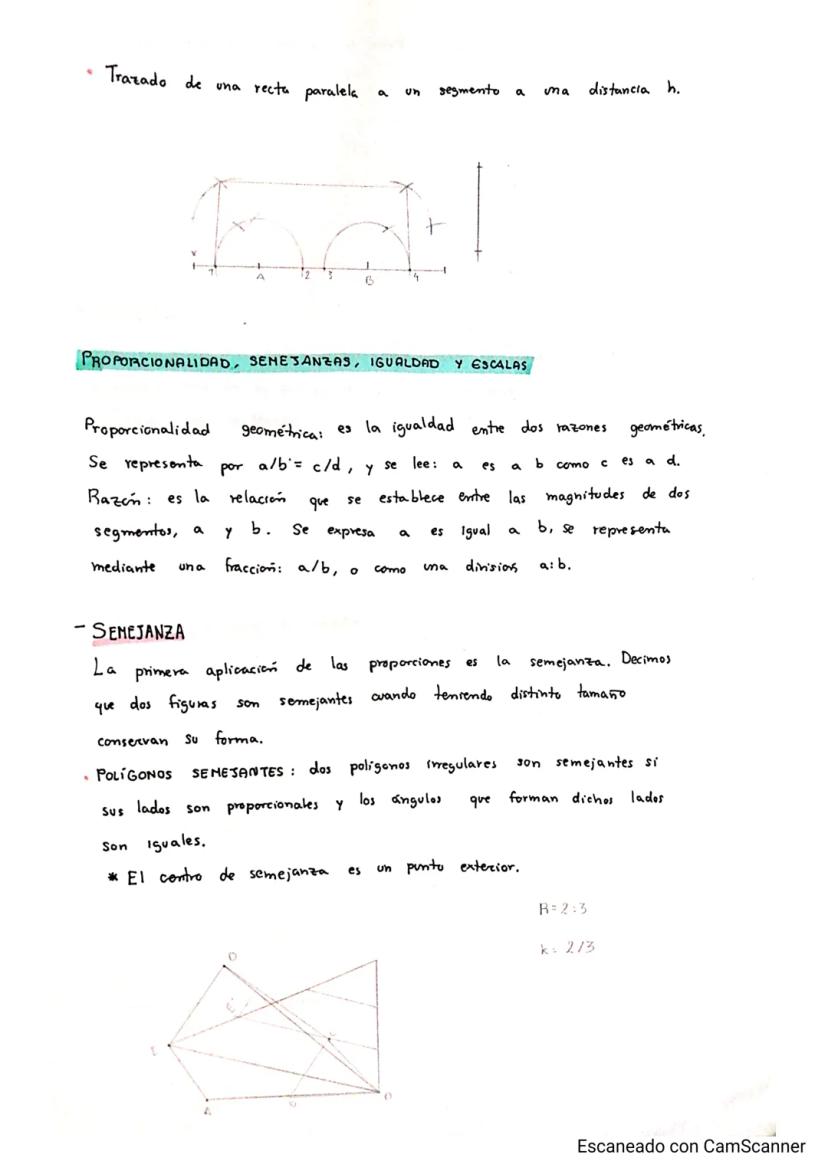 • Trazado de una recta paralela a un segmento a una distancia h.
1 A 2 3 B 4
PROPORCIONALIDAD, SEMEJANZAS, IGUALDAD Y ESCALAS
Proporcionalidad geométrica: es la igualdad entre dos razones geométricas.
Se representa por a/b = c/d, y se lee: a es a b como c es a d.
Razón: es la relación que se establece entre las magnitudes de dos
segmentos, a y b. Se expresa a es igual a b, se representa
mediante una fracción: a/b, o como una división a:b.
- SEMEJANZA
La primera aplicación de las proporciones es la semejanza. Decimos
que dos figuras son semejantes cuando teniendo distinto tamaño
conservan su forma.
• POLÍGONOS SEMEJANTES: dos polígonos irregulares son semejantes si
sus lados son proporcionales y los ángulos que forman dichos lados
son iguales.
* El centro de semejanza es un punto exterior.
R=2:3
k= 2/3
D
E'
A
Escaneado con CamScanner